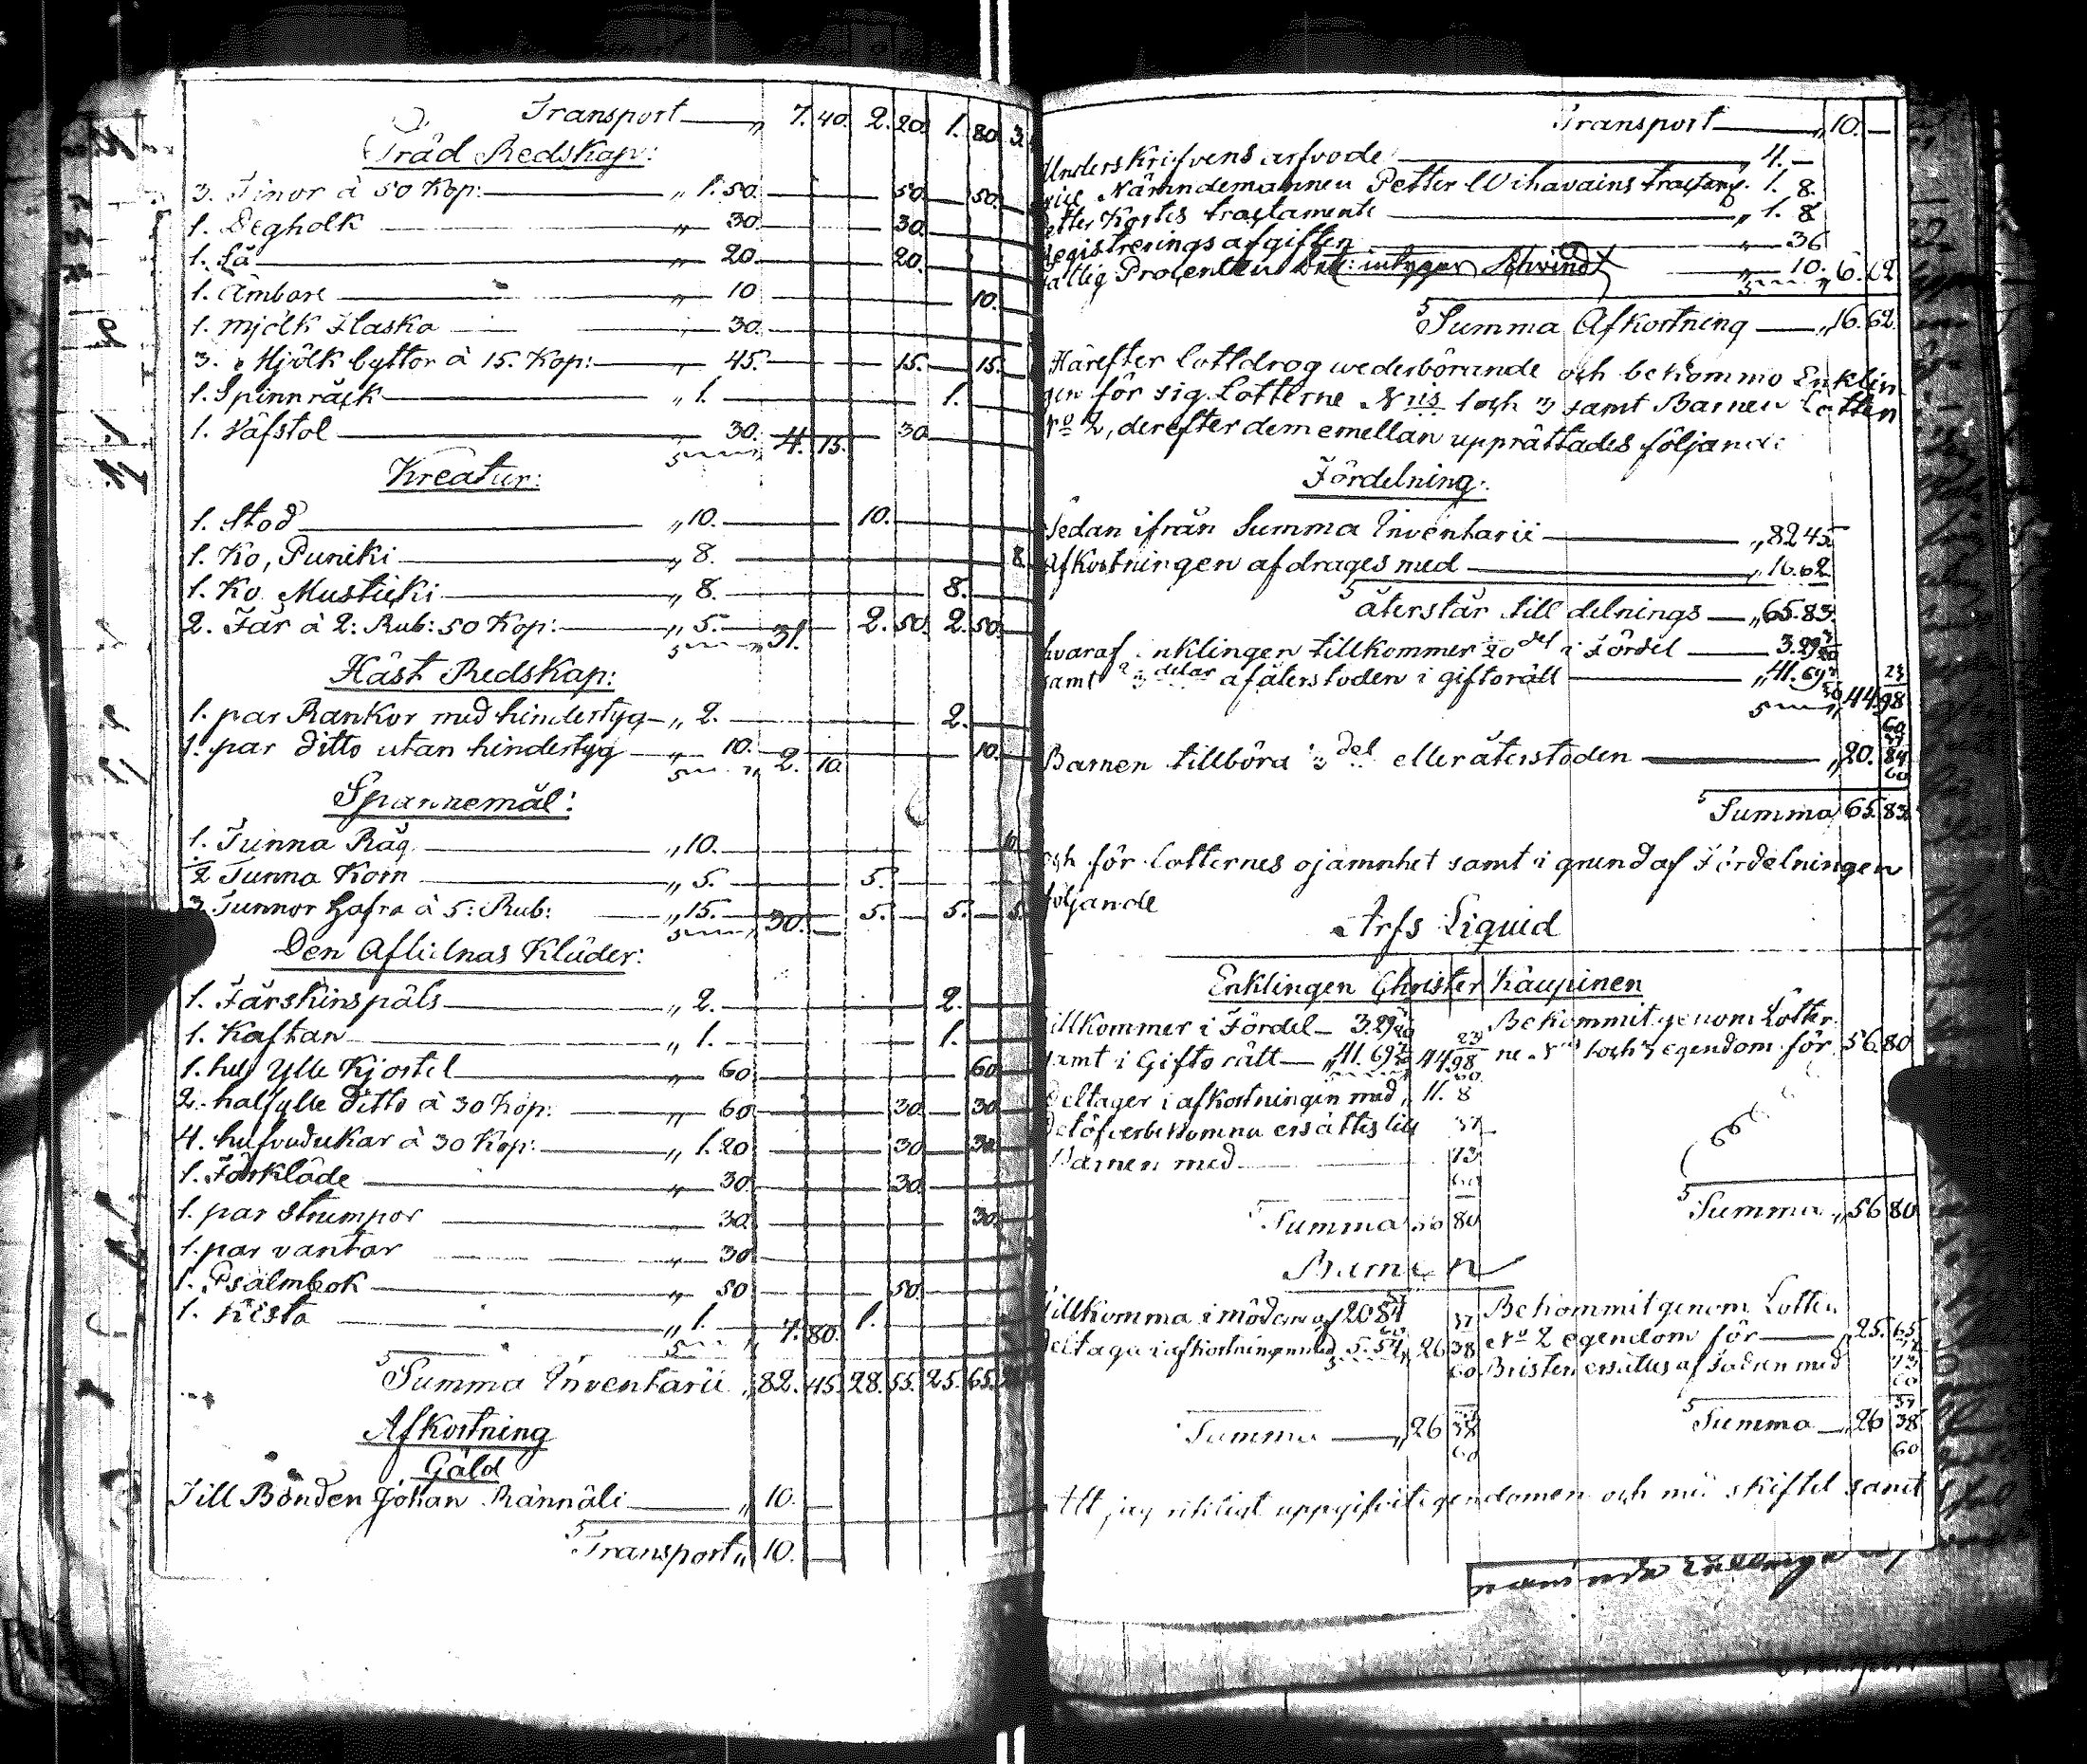 Transport „ 7. 40. 2. 20. 1. 80. 3.
Träd Redskap:
3. Tinor à 50 Kop: „ 1. 50. 50. 50.
1. Degholk „ 30. 30.
1. Så „ 20. 20.
1. Ämbare „ 10 10.
1. mjölk Flaska „ 30.
3. Mjölk byttor à 15. Kop: „ 45. 15. 15.
1. Spinnråck „ 1. 1.
1. Väfstol „ 30. 4. 15. 30
Kreatur:
1. Stod „ 10. 10.
1. Ko, Puniki „ 8. 8.
1. Ko Mustiki „ 8. 8.
2. Får à 2: Rub: 50 Kop: „ 5. 31. 2. 50. 2. 50.
Häst Redskap:
1. par Rankor med hindertyg „ 2. 2.
1. par ditto utan hindertyg „ 10. 2. 10. 10.
Spannemål:
1. Tunna Råg „ 10. 10.
½ Tunna Korn „ 5. 5.
3. Tunnor Hafra à 5: Rub: „ 15. 30. 5. 5. 5.
Den Aflidnas Kläder:
1. Fårskinspäls „ 2. 2.
1. Kaftan „ 1. 1.
1. hel Ylle Kjortel „ 60 60
2. halfylle ditto à 30 Kop: „ 60 30. 30
4. hufvudukar à 30 Kop: „ 1. 20 30 30
1. Förkläde „ 30 30.
1. par Strumpor „ 30 30.
1. par vantar „ 30
1. Psalmbok „ 50 50.
1. Kista „ 1. 7. 80. 1.
Summa Inventarii „ 82. 45. 28. 55. 25. 65.
Afkortning
Gäld
Till Bonden Johan Rännäli „ 10.
Transport „ 10.
Transport „ 10.
Underskrifvens arfvode „ 4.
Nämndemannen Petter Wihavains tractam. 1. 8.
Petter Kortis tractamente „ 1. 8
Registreringsafgiften „ 36
fattig Procenten „ 10. „ 6. 62
Summa Afkortning „ 16. 62.
Härefter lottdrog wederbörande och bekommo Enklin
gen för sig Lotterne N:ris 1 och 3 samt Barnen Lotten
N:o 2, derefter dem emellan upprättades följande
Fördelning:
Sedan ifrån Summa Inventarii „ 82 45
Afkortningen afdrages med „ 16. 62
återstår till delnings „ 65. 83.
hvaraf Enklingen tillkommer 1/20 del i Fördel 3. 29
samt 2/3 delar af återstoden i giftorätt „ 41. 69 44. 98
Barnen tillböra 1/3 del eller återstoden „ 20. 84
Summa 65. 83.
och för Lotternes ojämnhet samt i grund af Fördelningen
följande
Arfs Liquid
Enklingen Christer Kaupinen
Tillkommer i Fördel 3. 29
samt i Gifto rätt „ 41. 69 44 98
deltager i afkortningen med „ 11. 8
det öfverbekomna ersättes till
Barnen med
Summa 56 80
Bekommit genom Lotter
ne N:ris 1 och 3 egendom för 56. 80
Summa „ 56 80
Barnen
Tillkomma i möderne 20 84
deltaga i afkortningen med 5. 54 „ 26 38
Summa „ 26 38
Bekommit genom Lotten
N:o 2 egendom för 25. 65
Bristen ersättes af fadren med
Summa „ 26 38
Att jag riktigt uppgifvit egendomen och med skiftet samt